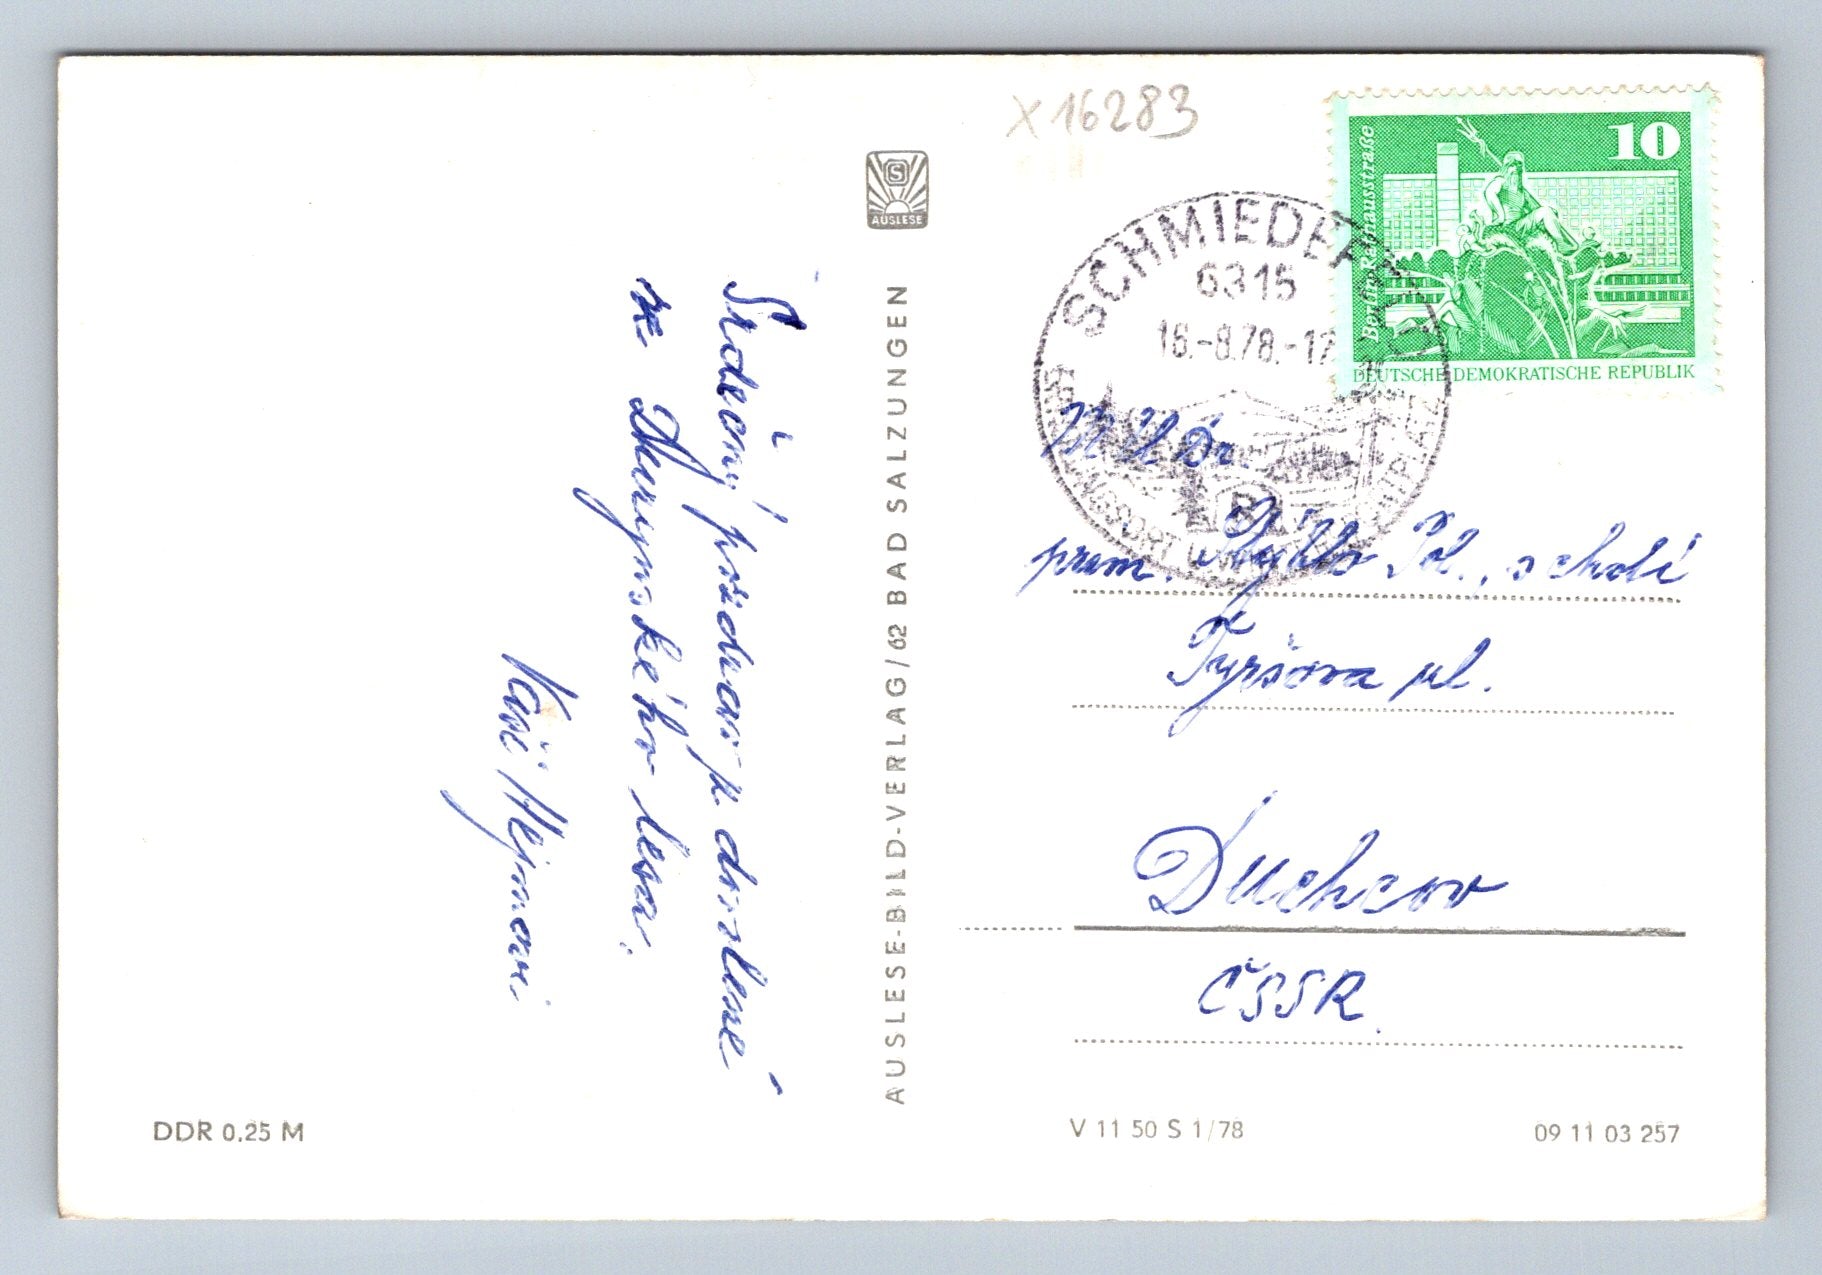 x 16283
S
AUSLESE
10
Berlin, Rathausstraße
DEUTSCHE DEMOKRATISCHE REPUBLIK
SCHMIEDEFELD
6315
16.-8.78.-17
Srdečný pozdrav z dovolené
ze Durynského lesa.
Vaši Hejmovi
AUSLESE-BILD-VERLAG/62 BAD SALZUNGEN
MUDr.
prom.
s chotí
Tyršova ul.
Duchcov
ČSSR.
DDR 0.25 M
V 11 50 S 1/78
09 11 03 257